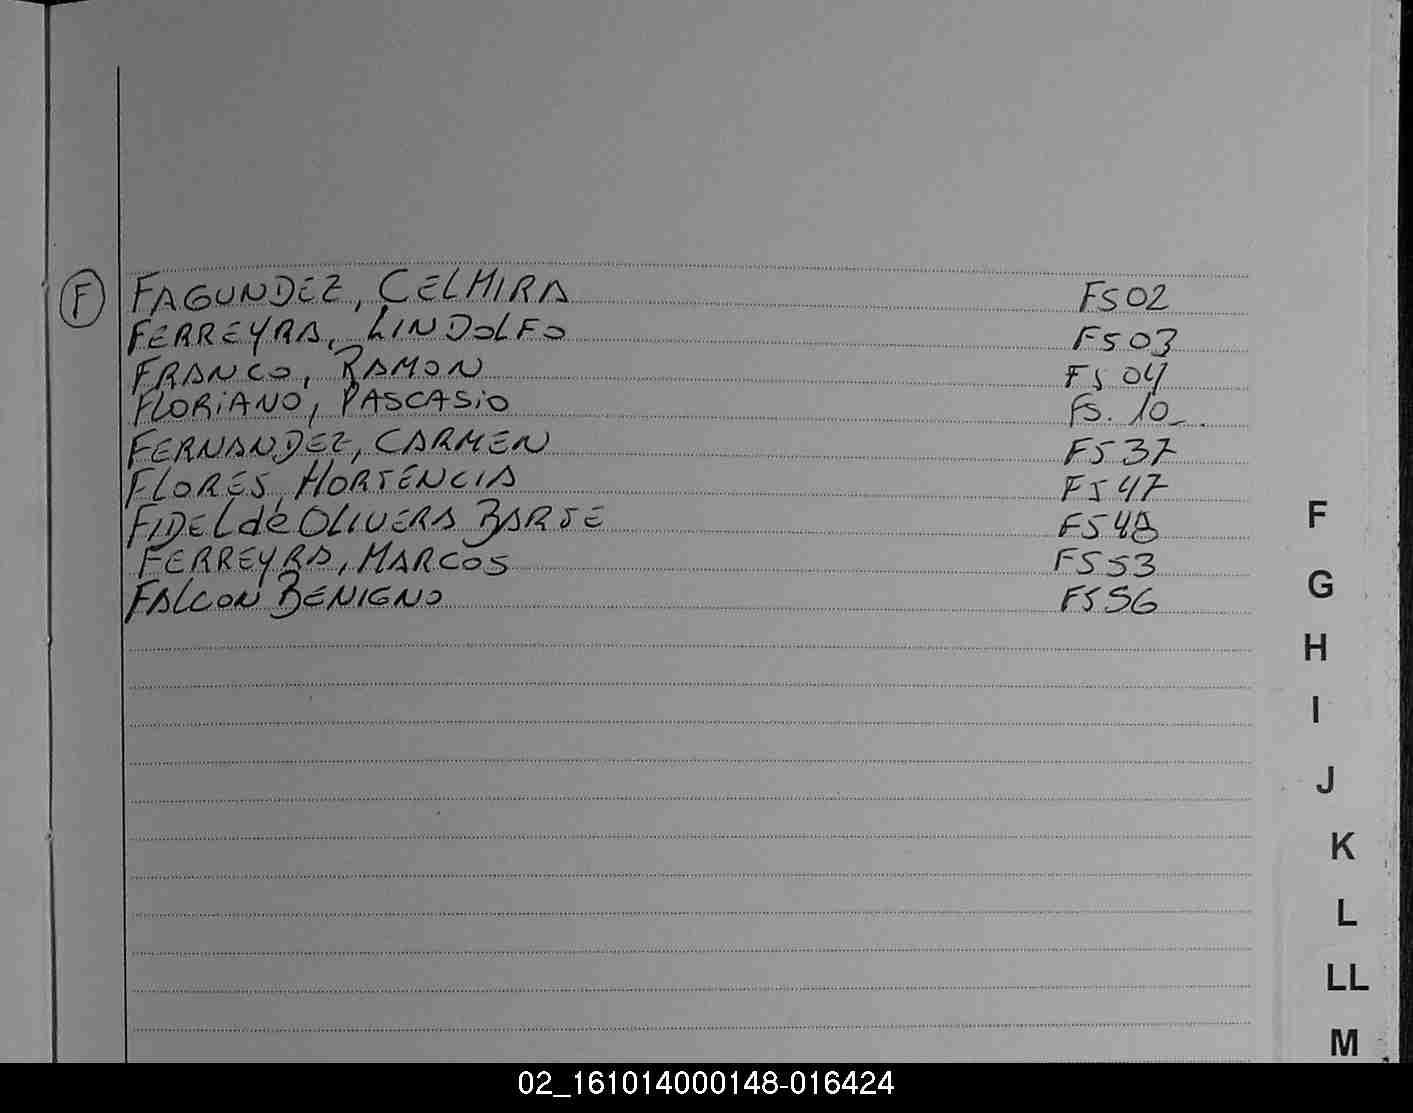 F
FAGUNDEZ, CELMIRA FS 02
FERREYRA, LINDOLFO FS 03
FRANCO, RAMON FS 04
FLORIANO, PASCASIO FS. 10
FERNANDEZ, CARMEN FS 37
FLORES, HORTENCIA FS 47
FIDEL de OLIVERA FS 48
FERREYRA, MARCOS FS 53
FALCON BENIGNO FS 56
F
G
H
I
J
K
L
LL
M
02_161014000148-016424